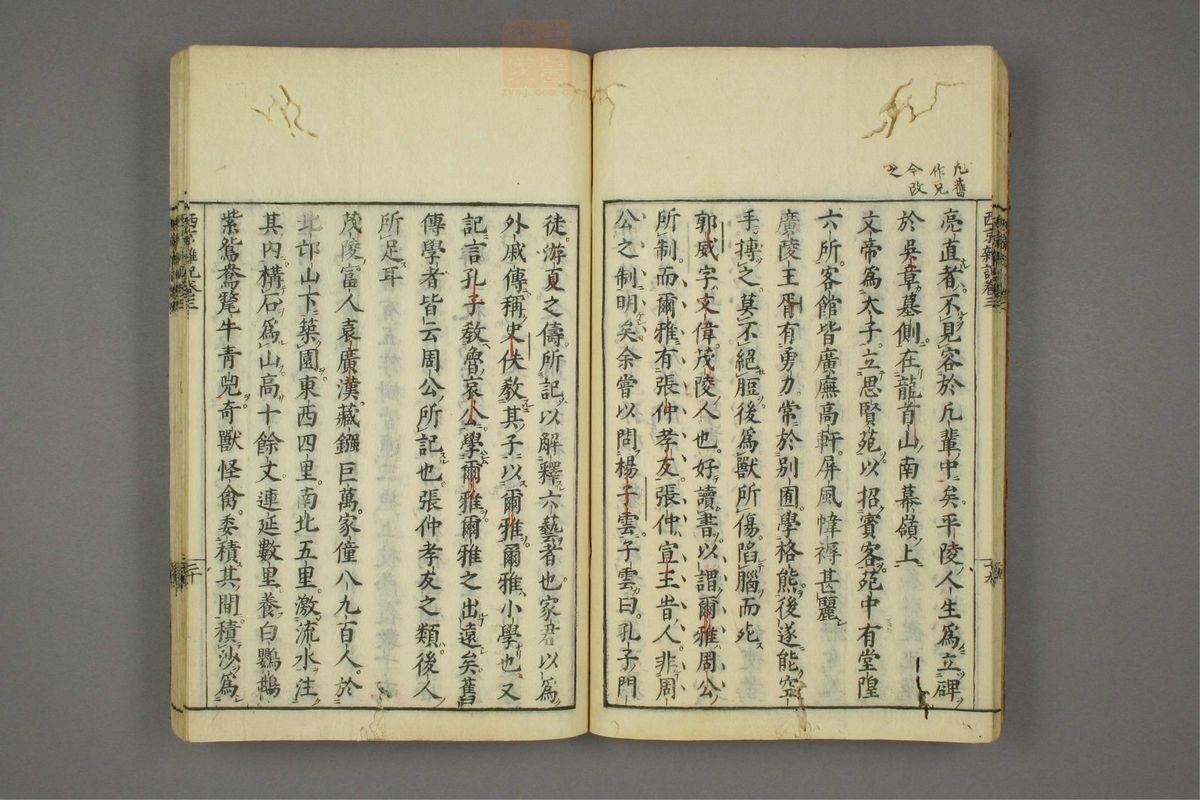 凢舊
作兄
今改
之
亮直者不見客於凢輩中矣平陵人生爲立碑
於吳章墓側在龍首山南幕嶺上
文帝爲太子立思賢苑以招賓客苑中有堂隍
六所客館皆廣廡高軒屏風幃褥甚麗
廣陵王胥有勇力常於别囿學格熊後遂能空
手搏之莫不絕脰後爲獸所傷陷腦而死
郭威字文偉茂陵人也好讀書以謂爾雅周公
所制而爾雅有張仲孝友張仲宣王昔人非周
公之制明矣余嘗以問楊子雲子雲曰孔子門
徒游夏之儔所記以解釋六藝者也家君以爲
外戚傳稱史佚敎其子以爾雅爾雅小學也又
記言孔子敎魯哀公學爾雅爾雅之出遠矣舊
傳學者皆云周公所記也張仲孝友之類後人
所足耳
茂陵富人袁廣漢藏鏹巨萬家僮八九百人於
北邙山下築園東西四里南北五里激流水注
其内構石爲山高十餘丈連延數里養白鸚鵡
紫鴛鴦氂牛青兕奇獸怪禽委積其間積沙爲